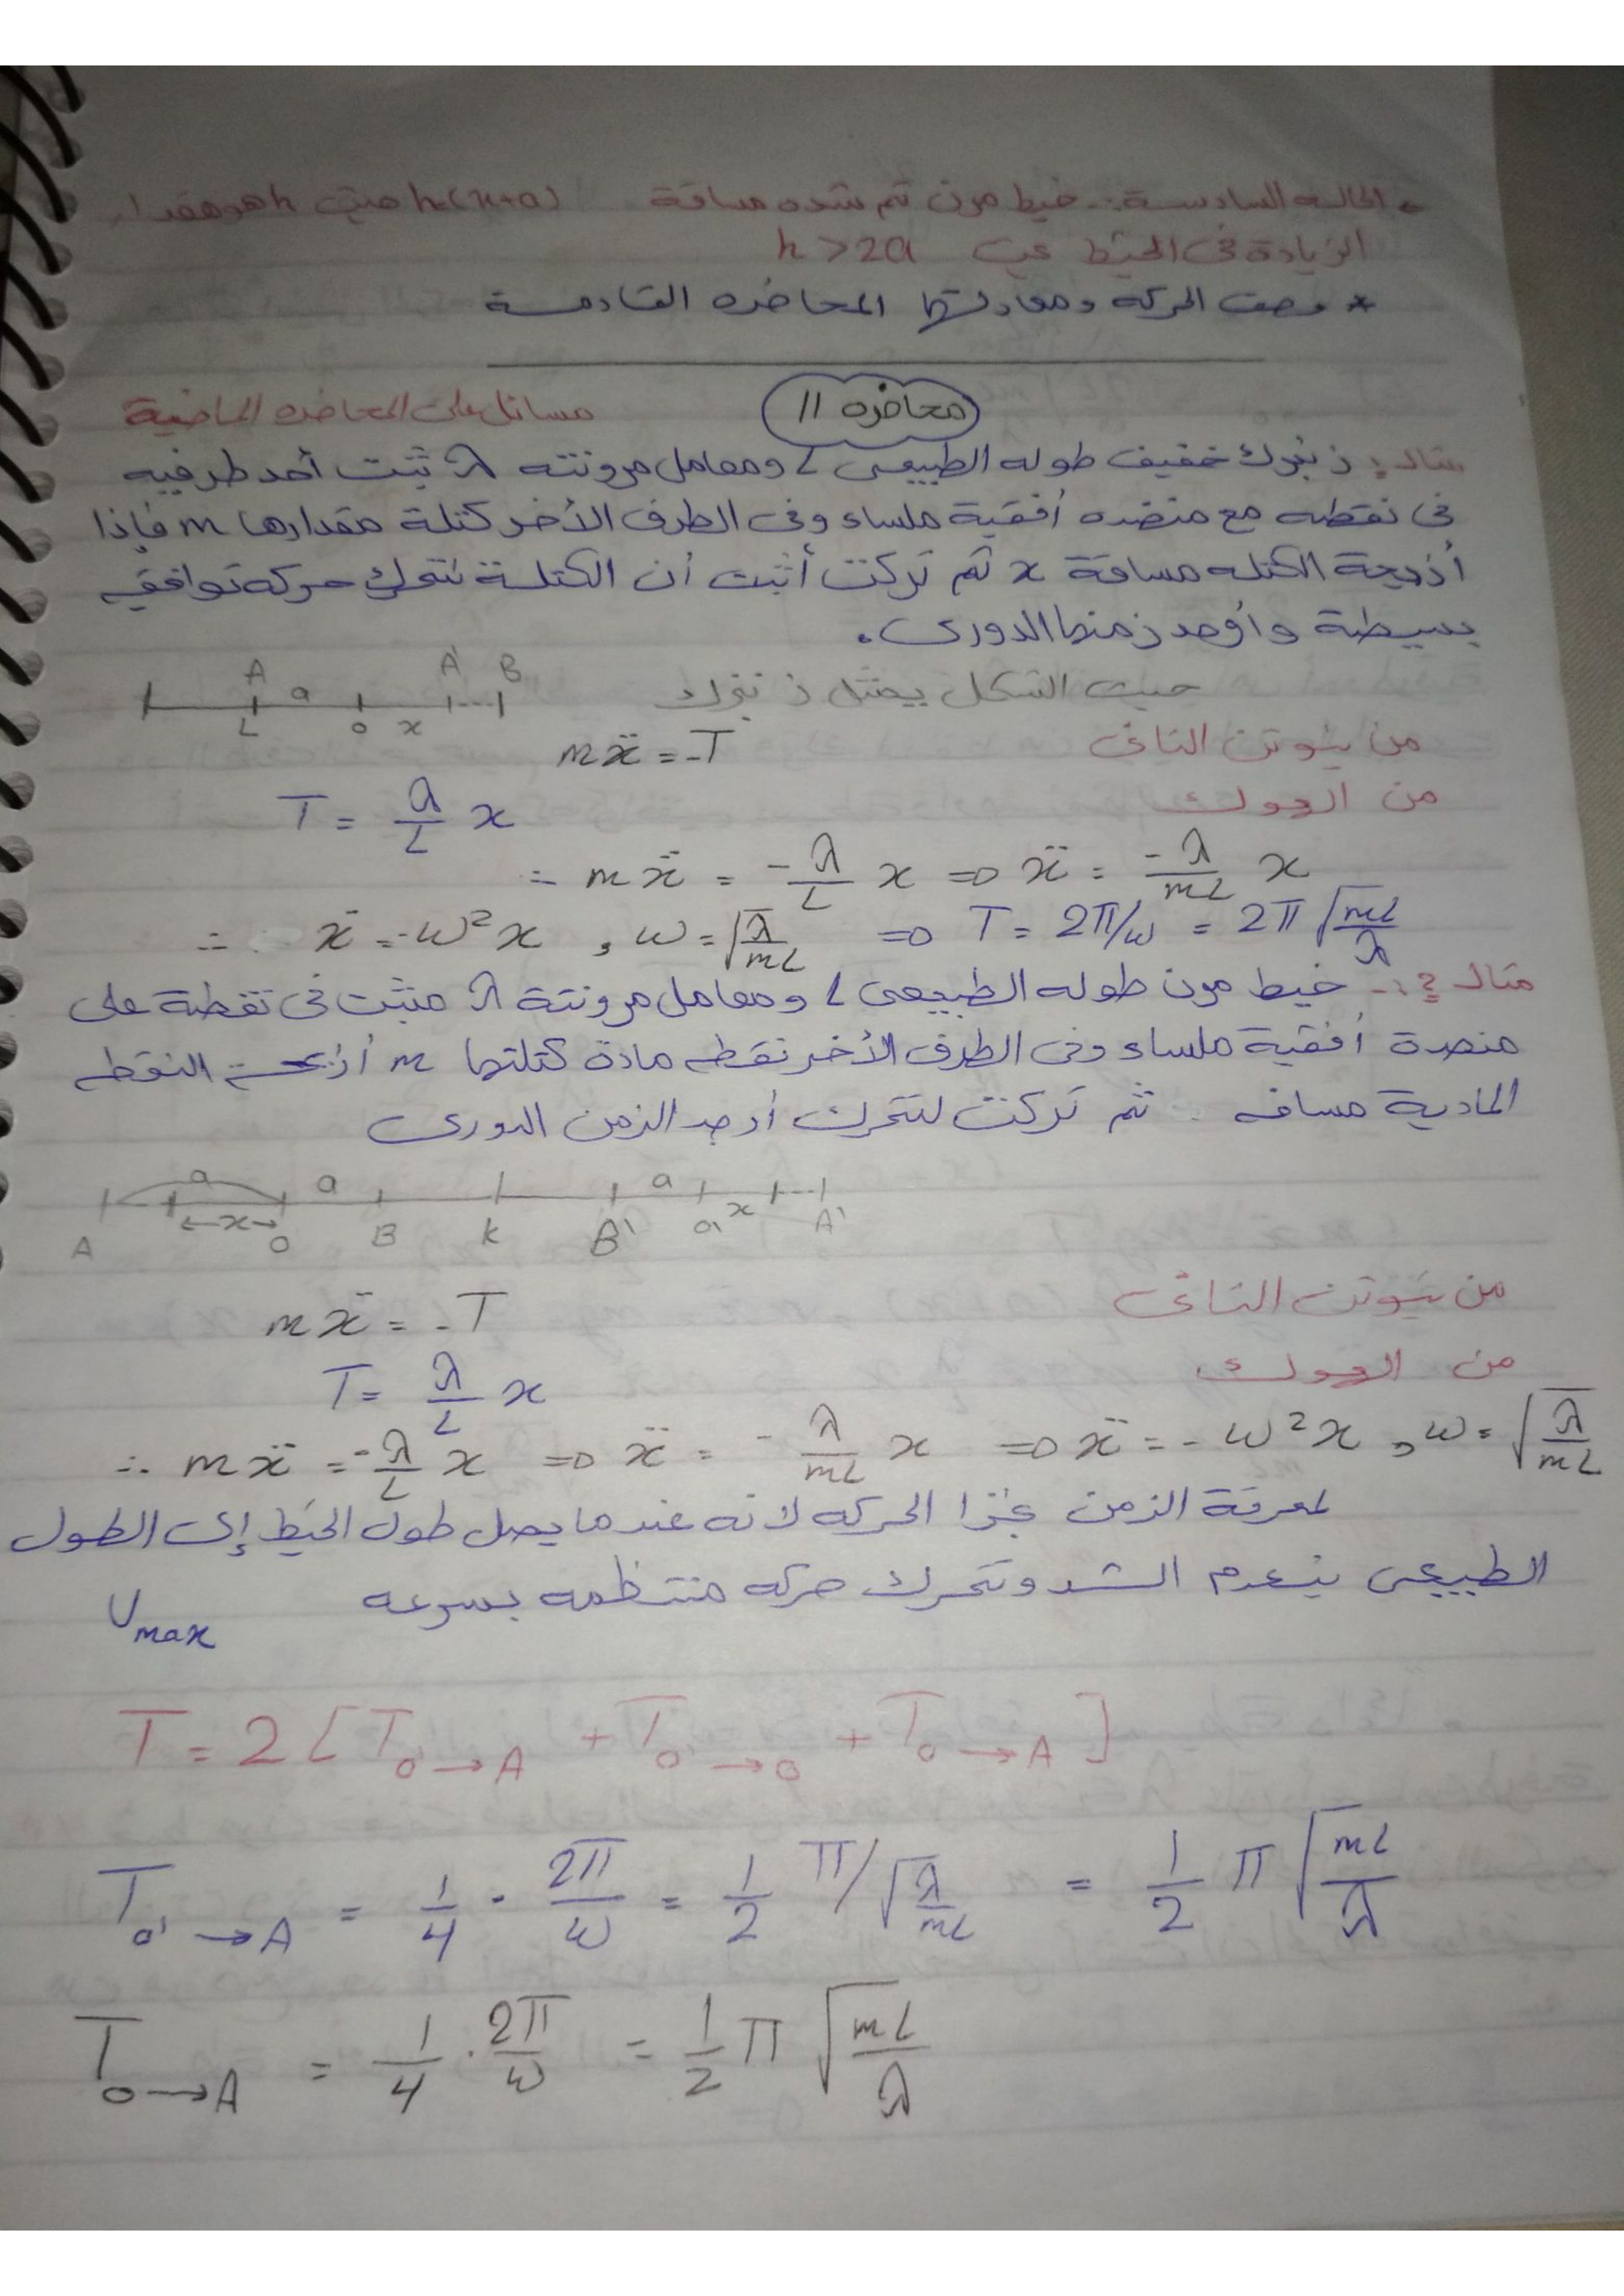 الحالة السادسة :- خيط مرن تم شده مسافة h-(x+a) حيث h هو مقدار
الزيادة فى الخيط عن h>2a
* وصف الحركة ومعادلتها المحاضره القادمة
محاضره 11
مسائل على المحاضره الماضية
مثال: زنبرك خفيف طوله الطبيعى L ومعامل مرونته λ ثبت أحد طرفيه
فى نقطه مع منضده أفقية ملساء وفى الطرف الأخر كتلة مقدارها m فإذا
أزيحة الكتله مسافة x ثم تركت أثبت أن الكتلة تتحرك حركه توافقيه
بسيطة وأوجد زمنها الدورى.
A a A' B
L o x
حيث الشكل يمثل زنبرك
من نيوتن الثانى mẍ = -T
من الهوك T = λ/L x
∴ mẍ = -λ/L x ⇒ ẍ = -λ/mL x
∴ ẍ = -ω²x , ω = √(λ/mL) ⇒ T = 2π/ω = 2π √(mL/λ)
مثال 2 :- خيط مرن طوله الطبيعى L ومعامل مرونتة λ مثبت فى نقطة على
منصدة أفقية ملساء وفى الطرف الأخر نقطه مادة كتلتها m النقطه
المادية مسافه ثم تركت لتتحرك أوجد الزمن الدورى
a a a
x x
A o B k B' o' A'
من نيوتن الثانى mẍ = -T
من الهوك T = λ/L x
∴ mẍ = -λ/L x ⇒ ẍ = -λ/mL x ⇒ ẍ = -ω²x , ω = √(λ/mL)
لمعرفة الزمن الحركه لأنه عندما يصل طول الخيط إلى الطول
الطبيعى ينعدم الشد وتتحرك حركه منتظمه بسرعه
Vmax
T = 2 [T o→A + T o'→o + T o→A]
T o'→A = 1/4 . 2π/ω = 1/2 π/√(λ/mL) = 1/2 π √(mL/λ)
T o→A = 1/4 . 2π/ω = 1/2 π √(mL/λ)